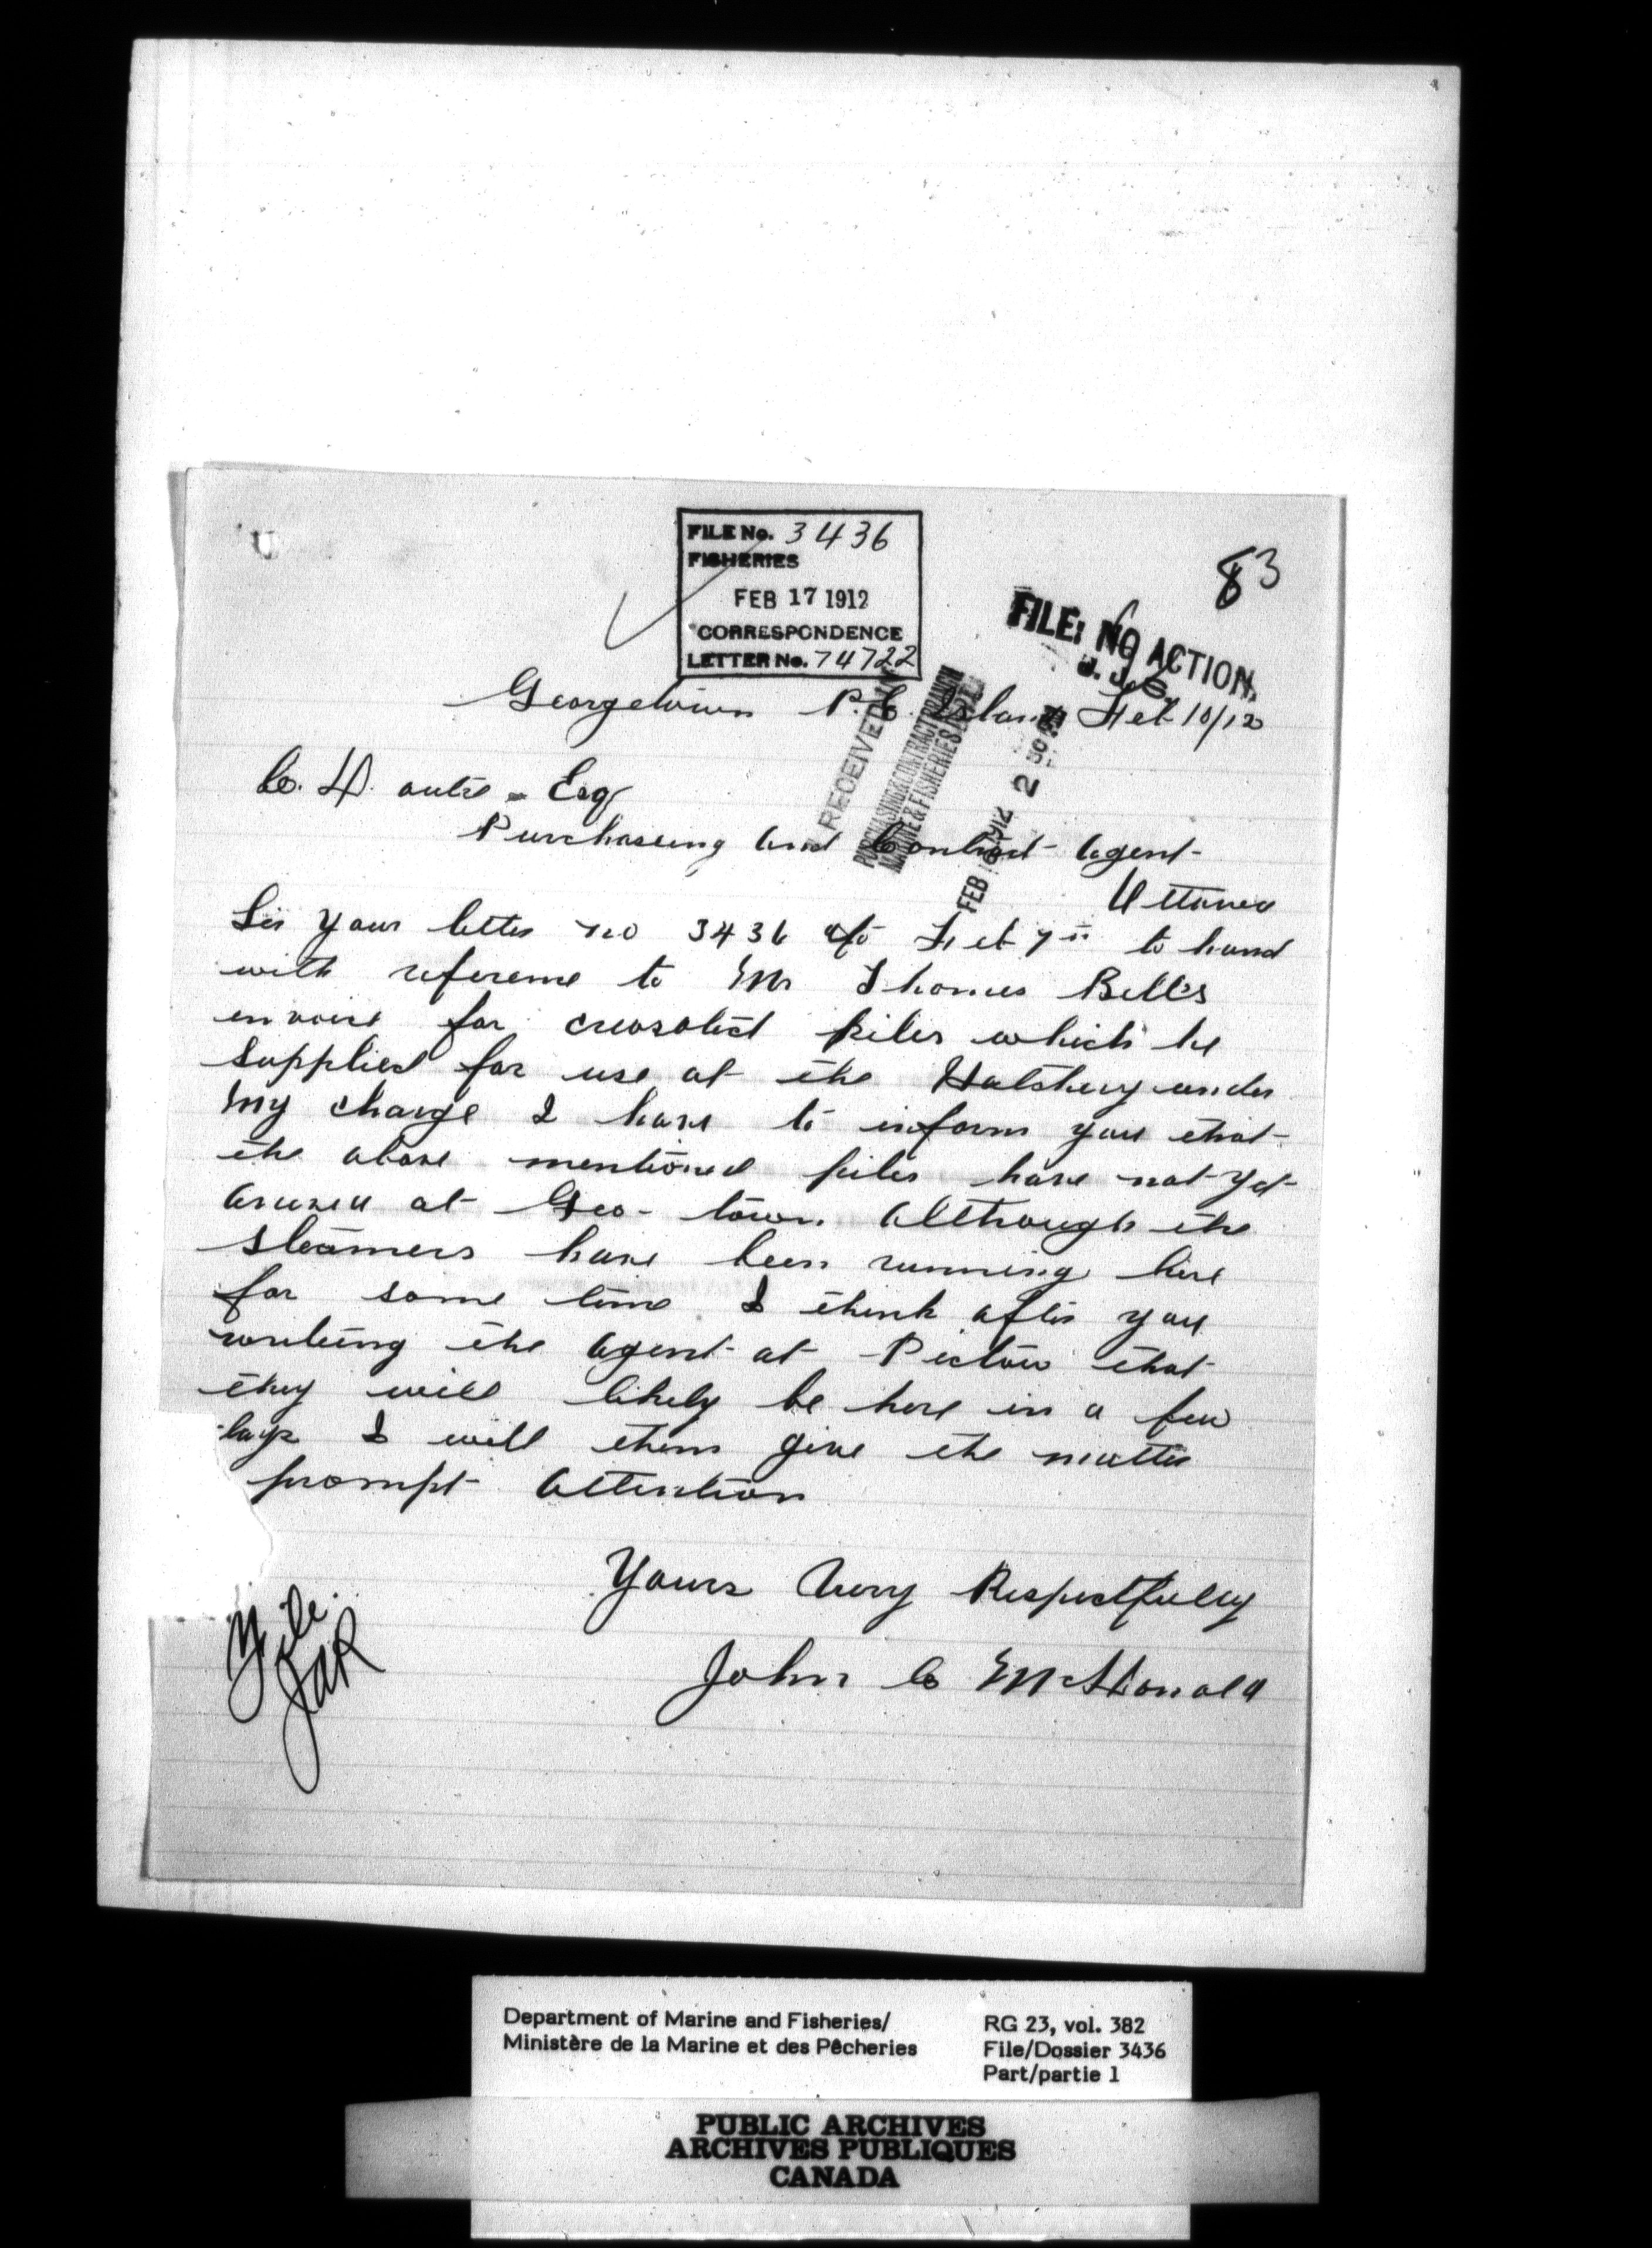 FILE No. 3436
FISHERIES
FEB 17 1912
CORRESPONDENCE
LETTER No. 74722
83
FILE: NO ACTION.
RECEIVED IN
PURCHASING & CONTRACT BRANCH
MARINE & FISHERIES
FEB 1912 2
Georgetown P.E. Island Feb 10/12
C. Doutre Esq
Purchasing and Contract Agent
Ottawa
Sir Your letter no 3436 of Feb 7th to hand
with reference to Mr Thomas Bells
invoice for creosoted piles which he
supplied for use at the Hatchery under
My charge I have to inform you that
the above mentioned piles have not yet
arrived at Geo-town Although the
steamers have been running here
for some time I think after you
writing the Agent at Pictou that
they will likely be here in a few
days I will then give the matter
prompt Attention
Yours Very Respectfully
John C McDonald
File
JAR
Department of Marine and Fisheries/
Ministère de la Marine et des Pêcheries
RG 23, vol. 382
File/Dossier 3436
Part/partie 1
PUBLIC ARCHIVES
ARCHIVES PUBLIQUES
CANADA